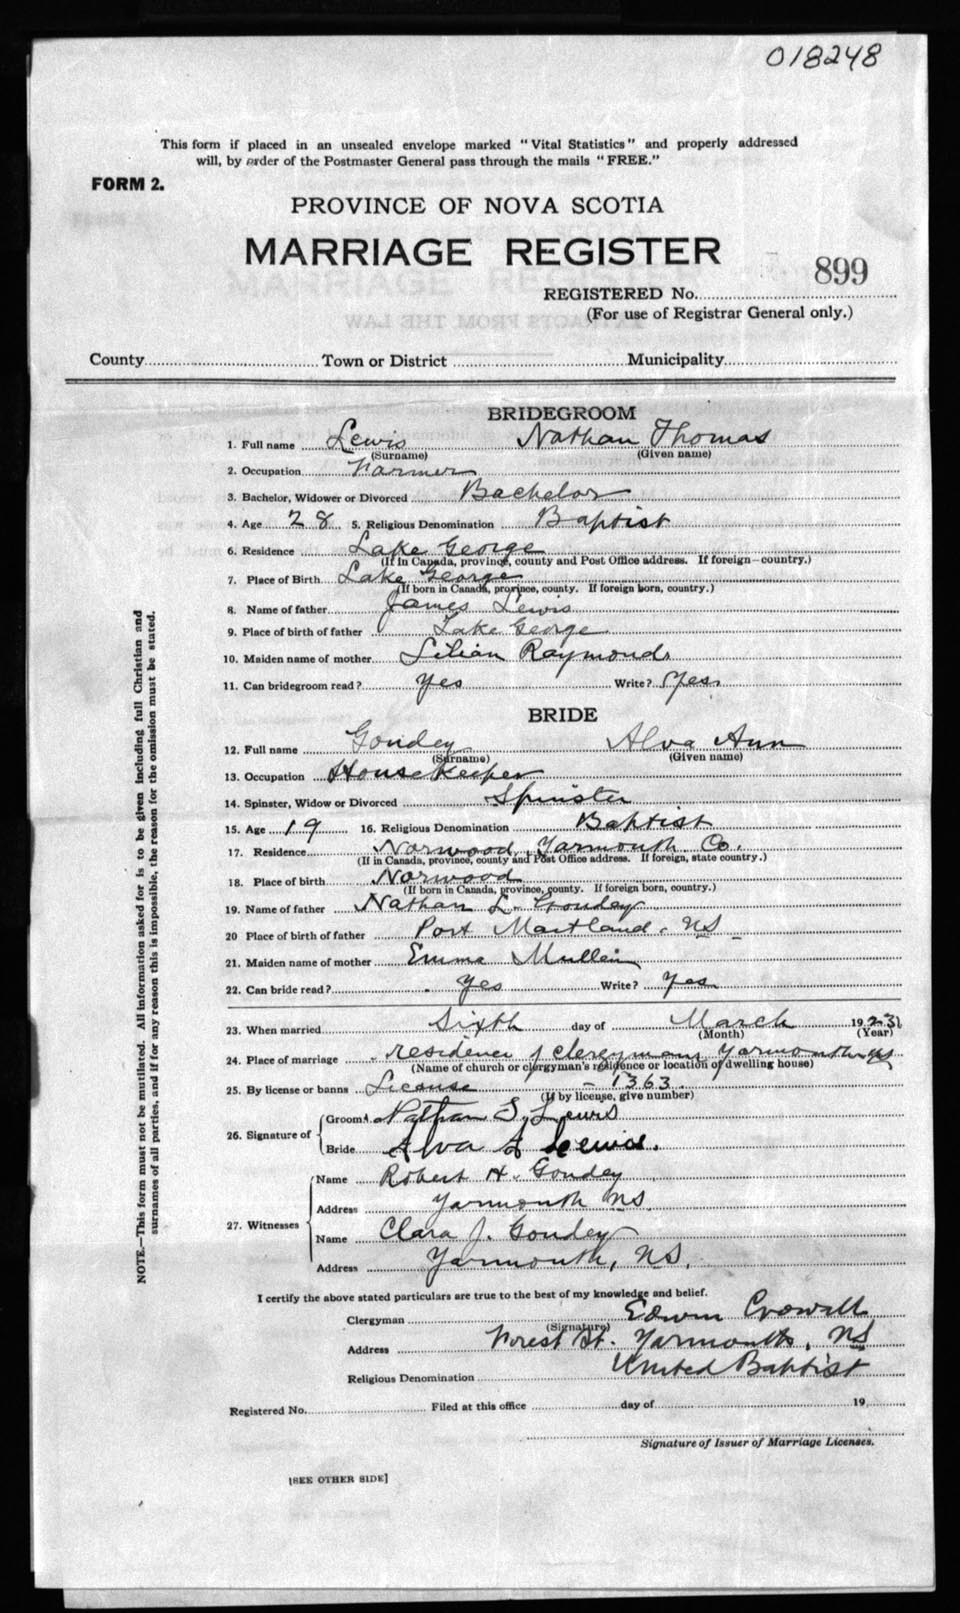 018248
This form if placed in an unsealed envelope marked "Vital Statistics" and properly addressed
will, by order of the Postmaster General pass through the mails "FREE."
FORM 2.
PROVINCE OF NOVA SCOTIA
MARRIAGE REGISTER
899
REGISTERED No.
(For use of Registrar General only.)
County Town or District Municipality
BRIDEGROOM
1. Full name Lewis Nathan Thomas
(Surname) (Given name)
2. Occupation Farmer
3. Bachelor, Widower or Divorced Bachelor
4. Age 28 5. Religious Denomination Baptist
6. Residence Lake George
(If in Canada, province, county and Post Office address. If foreign—country.)
7. Place of Birth Lake George
(If born in Canada, province, county. If foreign born, country.)
8. Name of father James Lewis
9. Place of birth of father Lake George
10. Maiden name of mother Lilian Raymond
11. Can bridegroom read? Yes Write? Yes
BRIDE
12. Full name Goudey Alva Ann
(Surname) (Given name)
13. Occupation Housekeeper
14. Spinster, Widow or Divorced Spinster
15. Age 19 16. Religious Denomination Baptist
17. Residence Norwood, Yarmouth Co.
(If in Canada, province, county and Post Office address. If foreign, state country.)
18. Place of birth Norwood
(If born in Canada, province, county. If foreign born, country.)
19. Name of father Nathan L. Goudey
20 Place of birth of father Port Maitland. NS
21. Maiden name of mother Emma Mullen
22. Can bride read? Yes Write? Yes
23. When married Sixth day of March 1923
(Month) (Year)
24. Place of marriage residence of clergyman, Yarmouth NS
(Name of church or clergyman's residence or location of dwelling house)
25. By license or banns License - 1363.
(If by license, give number)
26. Signature of Groom Nathan Lewis
Bride Alva Lewis.
27. Witnesses Name Robert H. Goudey
Address Yarmouth NS.
Name Clara J. Goudey
Address Yarmouth, NS.
I certify the above stated particulars are true to the best of my knowledge and belief.
Clergyman Edwin Crowell
(Signature)
Address Forest St. Yarmouth, NS
Religious Denomination United Baptist
Registered No. Filed at this office day of 19
Signature of Issuer of Marriage Licenses.
[SEE OTHER SIDE]
NOTE.—This form must not be mutilated. All information asked for is to be given including full Christian and
surnames of all parties, and if for any reason this is impossible, the reason for the omission must be stated.